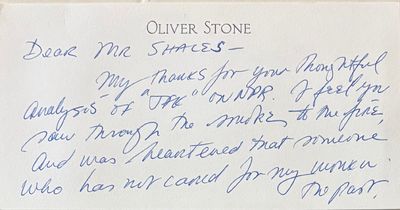 OLIVER STONE
Dear Mr SHALES –
My thanks for your thoughtful
analysis of "JFK" on NPR. I feel you
saw through the smoke to the fire,
and was heartened that someone
who has not cared for my work in
the past.